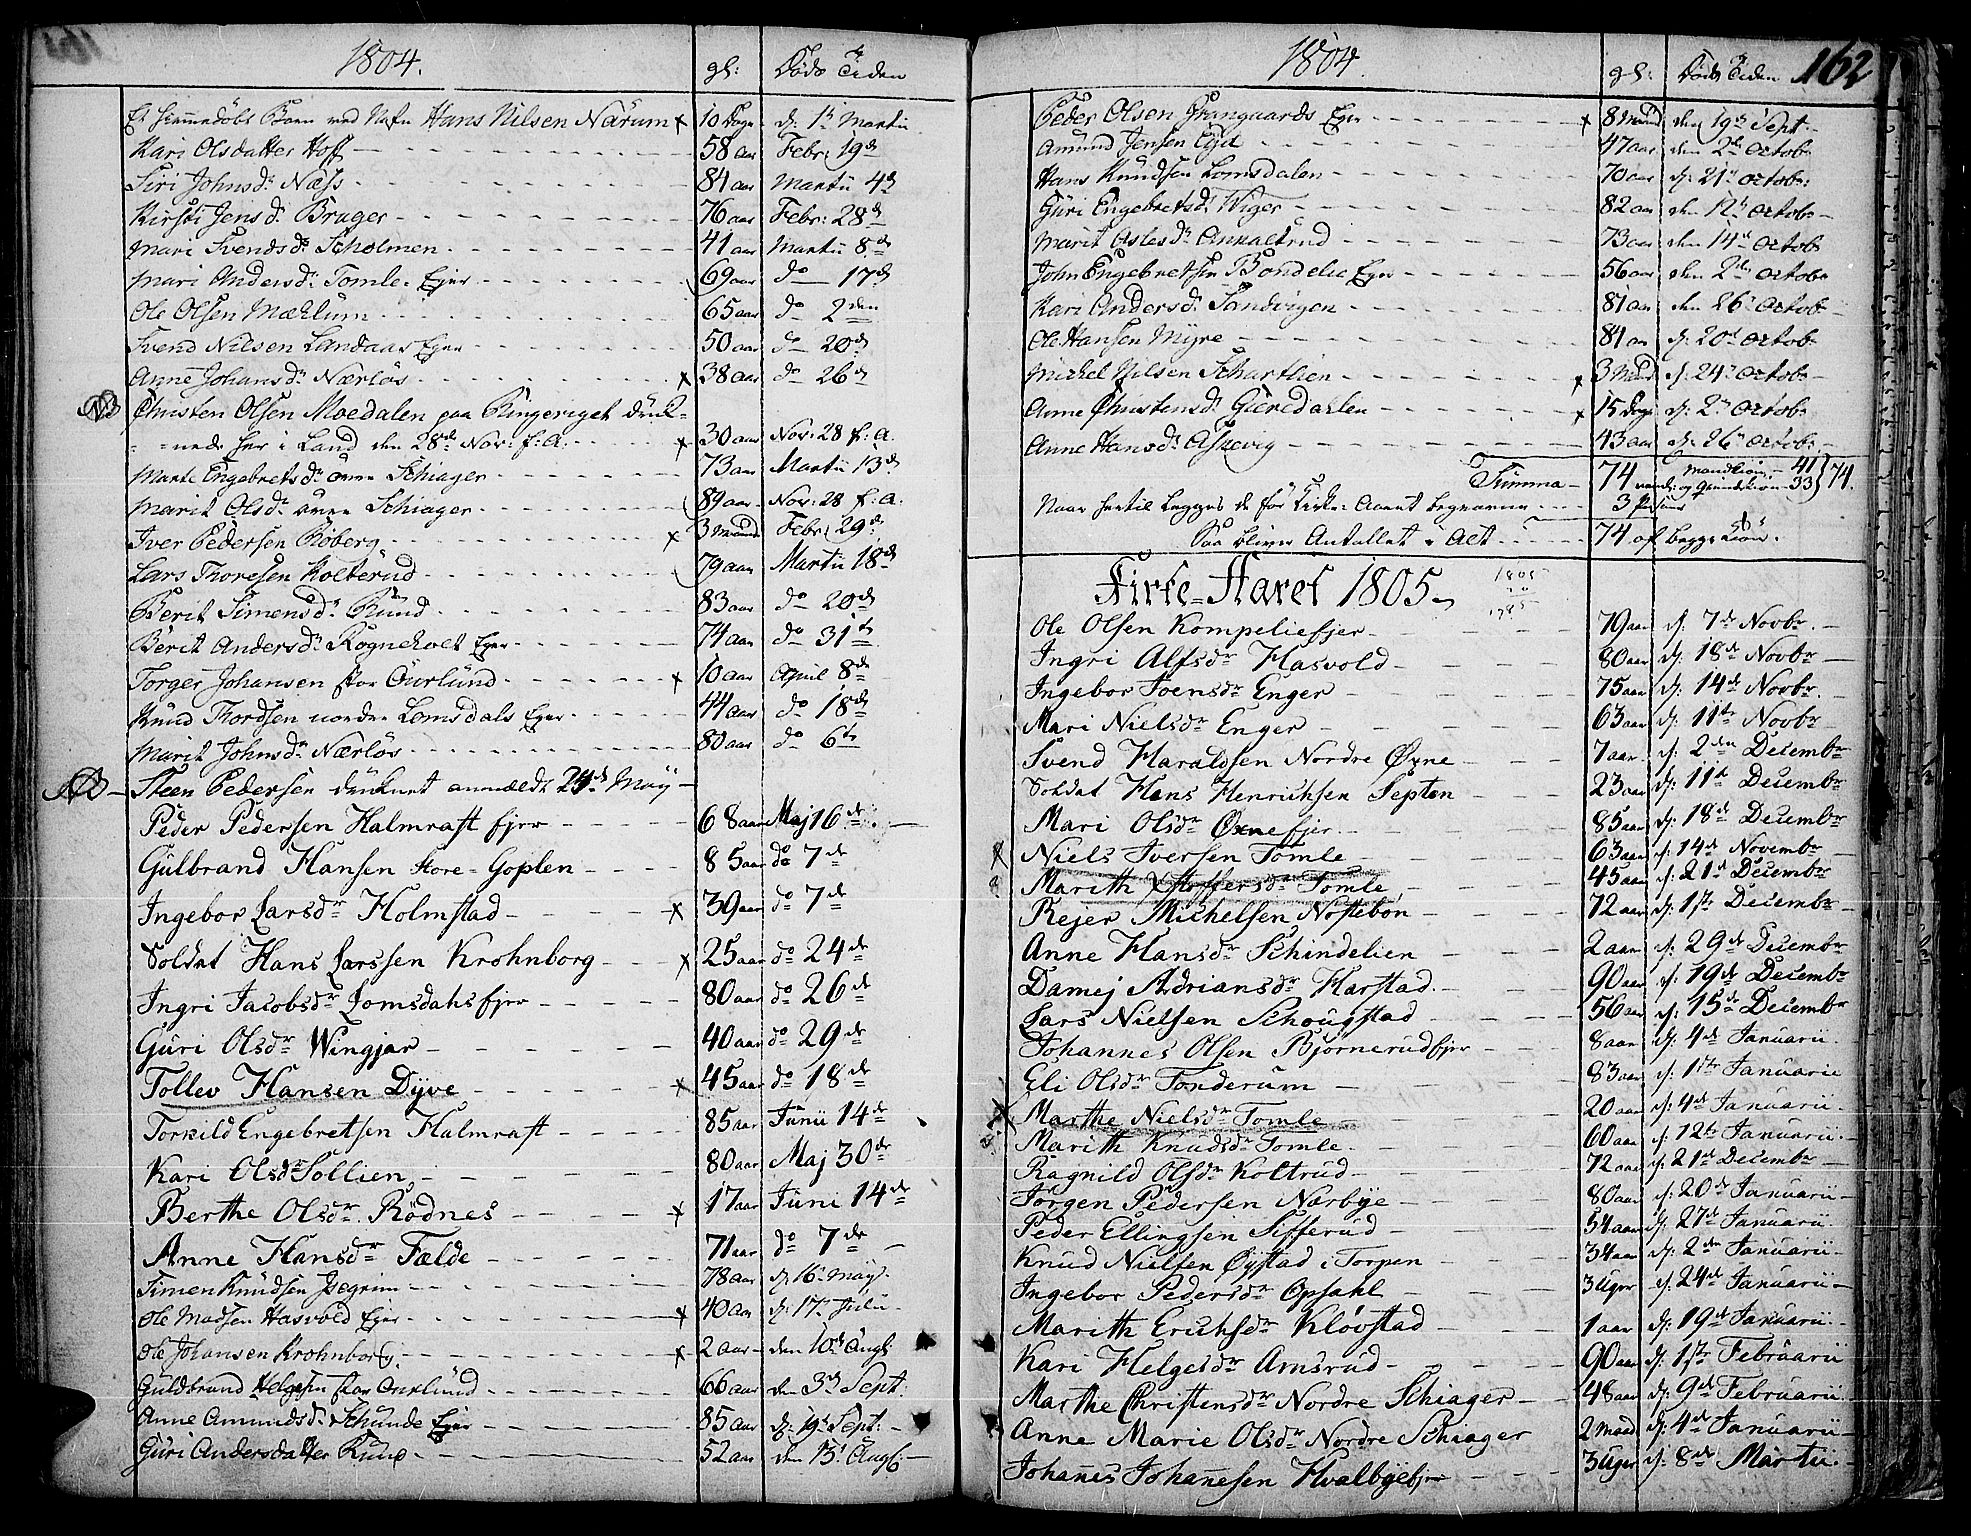 1804. gl: Døds Tiden
Et hiemmedøbt Barn ved Nafn Hans Nilsen Närum x 10 Dage d. 1t Martii
Kari Olsdatter Hoff 58 aar Febr: 19d
Siri Johnsdr Næss 84 aar Martii 4d
Kirsti Jensdr Brager 76 aar Febr: 28d
Mari Svendsdr Scholmen 41 aar Martii 8de
Mari Andersdr Tomle Ejer 69 aar do 17d
Ole Olsen Mæhlum 65 aar do 2den
Svend Nilsen Landaas Ejer 50 aar do 20d
Anne Johansdr Nærlös x 38 aar do 26d
NB Christen Olsen Moedalen paa Ringeriget druk-
nede her i Land den 28de Nov: f: A. x 30 aar Nov: 28 f: A.
Marte Engebretsdr øvre Schiager 73 aar Martii 13d
Marit Olsdr øvre Schiager 89 aar Nov: 28 f: A:
Iver Pedersen Röberg x 3 Maand Febr: 29d
Lars Thoresen Kolterud 79 aar Martii 18d
Berit Simensdr Rund 83 aar do 20d
Berit Andersdr Rogneholt Ejer 74 aar do 31t
Torger Johansen stor Ourlund x 10 aar April 8de
Knud Thordsen nordre Lomsdals Ejer 44 aar do 18d
Marit Johnsdr Nærlös 80 aar do 6te
NB Steen Pedersen druknet anmeldt 24d May
Peder Pedersen Halmrast Ejer 68 aar Maj 16de
Gulbrand Hansen Store-Goplen 85 aar do 7de
Ingebor Larsdr Holmstad x 39 aar do 7de
Soldat Hans Larssen Krohnborg x 25 aar do 24de
Ingri Jacobsdr Lomsdahs Ejer 80 aar do 26de
Guri Olsdr Wingjar 40 aar do 29de
Tollev Hansen Dyve x 45 aar do 18de
Torkild Engebretsen Halmrast 85 aar Junii 14de
Kari Olsdr Sollien 80 aar Maj 30de
Berthe Olsdr Rödnes x 17 aar Juni 14de
Anne Hansdr Fælde 71 aar do 7de
Simen Knudsen 78 aar d. 16 May
Ole Madsen Hasvold Ejer x 40 aar d: 17 Julii
Ole Johansen Krohnborg x 2 aar den 10d Augs
Guldbrand Helgesen stor Ourlund 66 aar den 3d Sept:
Anne Amundsdr Schunde Ejer 85 aar d: 19d Sept:
Guri Andersdatter Rund 52 aar den 13d Augs:
1804. gl: Døds Tiden 162
Peder Olsen Grangaards Ejer x 8 Maand den 19d Sept.
Amund Jensen Eyd 47 aar den 2de Octob
Hans Knudsen Lomsdalen 70 aar d: 21d October
Guri Engebretsdr Wiger 82 aar den 12d Octob
Marit Aslesdr Ankaltrud 73 aar den 14d Octob
John Engebretsen Bondelie Ejer 56 aar den 2den Octob
Kari Andersdr Sandvigen 81 aar den 26d Octob
Ole Hansen Myre 84 aar d: 20d Octob
Michel Nilsen Schartlien x 3 Maand d: 24d Octob
Anne Christensdr Gieredahlen x 15 Dage d: 2d Octob
Anne Hansdr Askevig 43 aar d: 26d Octob
Summa 74 Mandkiön 41 og Quindekiön 33 } 74.
Naar hertil lægges de før Kirke-Aaret begravne 3 Personer
Saa bliver Antallet i Alt 74 af begge Kiön.
Kirke-Aaret 1805. 1805 20 1785
Ole Olsen Kompeliefjer 79 aar d: 7de Novbr
Ingri Alfsdr Hasvold 80 aar d: 18de Novbr
Ingebor Joensdr Enger 75 aar d: 14de Novbr
Mari Nielsdr Enger 63 aar d: 11te Novbr
Svend Haraldsen Nordre Øxne 7 aar d: 2den Decembr
Soldat Hans Henrichsen Septon 23 aar d: 11te Decembr
Mari Olsdr Øxnefjer 85 aar d: 18de Decembr
x Niels Iversen Tomle 63 aar d: 14de Novembr
Marith Stoffersdr Tomle 45 aar d: 21d Decembr
Rejer Michelsen Nöstebön 72 aar d: 1ste Decembr
Anne Hansdr Schindelien 2 aar d: 29de Decembr
Damej Adriansdr Harstad 90 aar d: 19de Decembr
Lars Nielsen Schougstad 56 aar d: 15de Decembr
Johannes Olsen Bjørnerudfjer 8 aar d: 4de Januarii
Eli Olsdr Tonderum 83 aar d: 1ste Januarie
x Marthe Nielsdr Tomle 20 aar d: 4de Januarii
Marith Knudsdr Tomle 60 aar d: 12te Januarii
Ragnild Olsdr Koltrud 72 aar d: 21de Decembr
Jörgen Pedersen Nærbye 80 aar d: 20de Januarii
Peder Ellingsen Sifferud 54 aar d: 27de Januarii
Knud Nielsen Øystad i Torpen 34 aar d: 2den Januarii
Ingebor Pedersdr Opsahl 3 Uger d: 24de Januarii
Marith Erichsdr Kløvstad 1 aar d: 19de Januarii
Kari Helgesdr Amsrud 90 aar d: 1ste Februarii
Marthe Christensdr Nordre Schiager 48 aar d: 9de Februarii
Anne Marie Olsdr Nordre Schiager 2 Maad d: 4de Januarii
Johanes Johanesen Hvalbyefjer 3 Uger d: 8de Martii